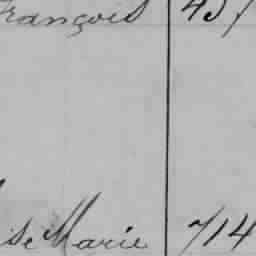 François 457
se Marie 714